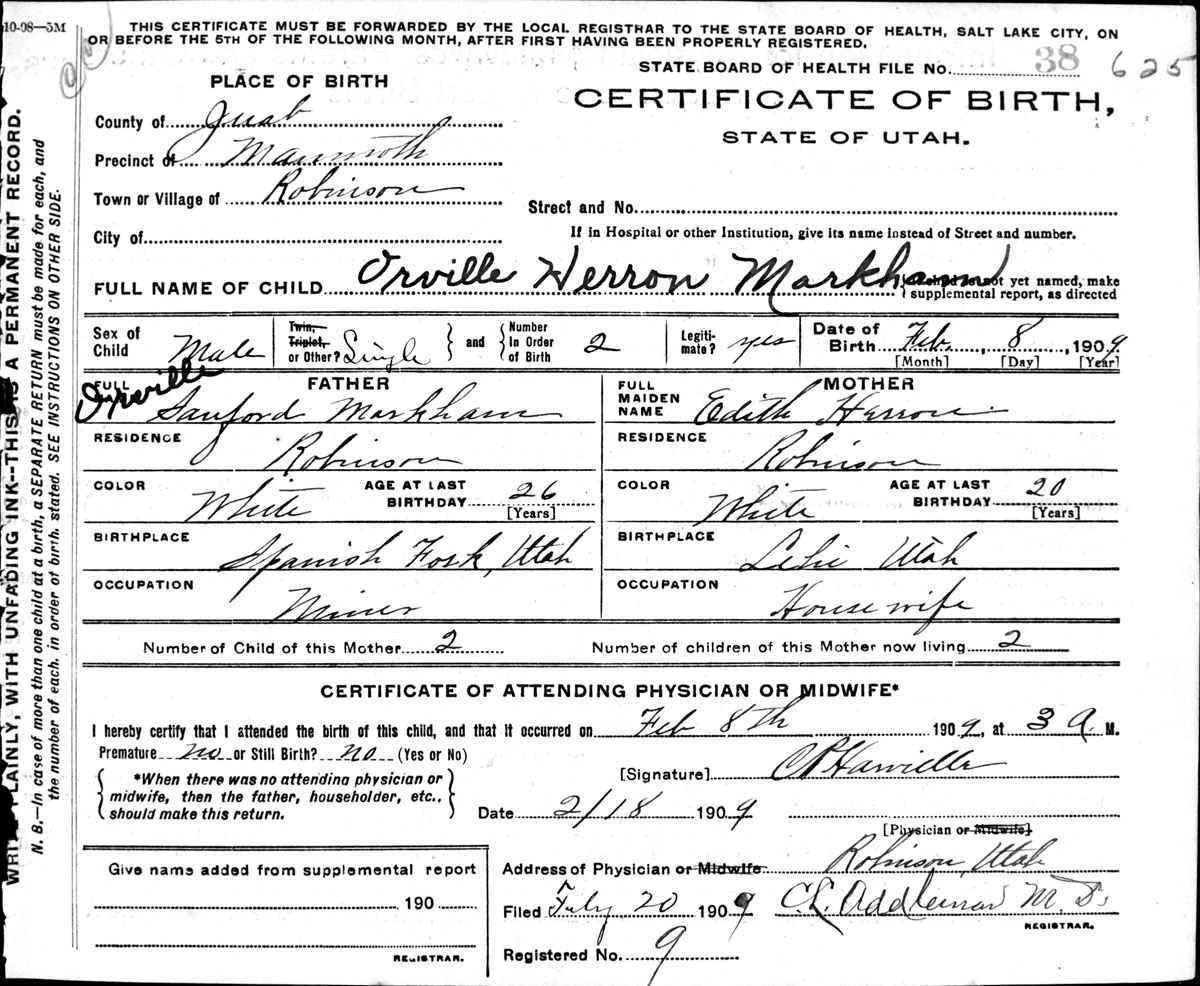 10-08—5M
THIS CERTIFICATE MUST BE FORWARDED BY THE LOCAL REGISTRAR TO THE STATE BOARD OF HEALTH, SALT LAKE CITY, ON
OR BEFORE THE 5TH OF THE FOLLOWING MONTH, AFTER FIRST HAVING BEEN PROPERLY REGISTERED.
STATE BOARD OF HEALTH FILE No. 38 625
PLACE OF BIRTH
CERTIFICATE OF BIRTH,
STATE OF UTAH.
County of Juab
Precinct of Mammoth
Town or Village of Robinson
Street and No.
City of
If in Hospital or other Institution, give its name instead of Street and number.
FULL NAME OF CHILD Orville Herron Markham not yet named, make
supplemental report, as directed
Sex of Child Male
Twin, Triplet, or Other? Single and Number In Order of Birth 2
Legiti-mate? yes
Date of Birth Feb. 8, 1909
[Month] [Day] [Year]
FULL FATHER
Orville Sanford Markham
FULL MAIDEN NAME MOTHER
Edith Herron
RESIDENCE Robinson
RESIDENCE Robinson
COLOR White AGE AT LAST BIRTHDAY 26 [Years]
COLOR White AGE AT LAST BIRTHDAY 20 [Years]
BIRTHPLACE Spanish Fork, Utah
BIRTHPLACE Lehi Utah
OCCUPATION Miner
OCCUPATION Housewife
Number of Child of this Mother 2 Number of children of this Mother now living 2
CERTIFICATE OF ATTENDING PHYSICIAN OR MIDWIFE*
I hereby certify that I attended the birth of this child, and that it occurred on Feb 8th 1909, at 3 A. M.
Premature no or Still Birth? no (Yes or No)
*When there was no attending physician or
midwife, then the father, householder, etc.,
should make this return.
[Signature]
Date 2/18 1909
[Physician or Midwife]
Address of Physician or Midwife Robinson, Utah
Filed 20 1909 C.L. M. D.
REGISTRAR.
Registered No. 9
Give name added from supplemental report
190
REGISTRAR.
PLAINLY, WITH UNFADING INK--THIS IS A PERMANENT RECORD.
N. B.—In case of more than one child at a birth, a SEPARATE RETURN must be made for each, and
the number of each, in order of birth, stated. SEE INSTRUCTIONS ON OTHER SIDE.